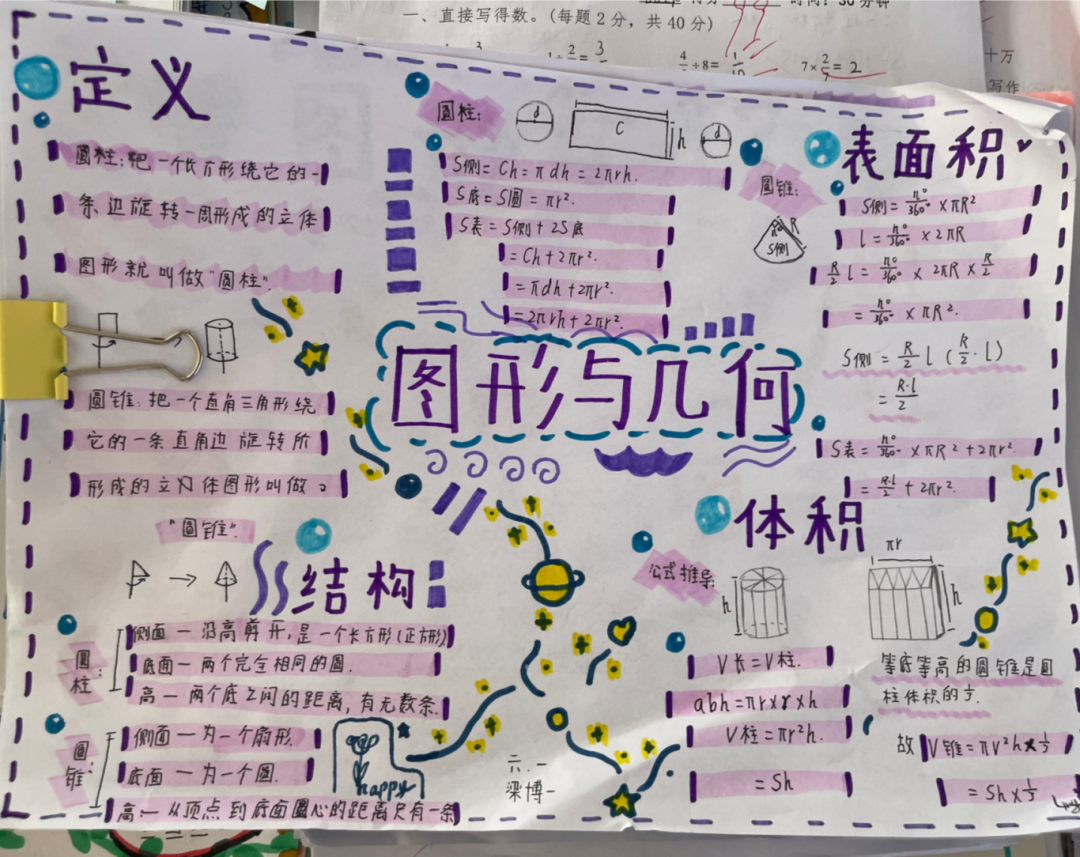 一、直接写得数。(每题2分，共40分)
7×2/7=2
十万
写作
定义
圆柱:把一个长方形绕它的一
条边旋转一周形成的立体
图形就叫做"圆柱".
圆锥:把一个直角三角形绕
它的一条直角边旋转所
形成的立体图形叫做
"圆锥".
圆柱:
d
C
h
d
S侧=Ch=πdh=2πrh.
S底=S圆=πr².
S表=S侧+2S底
=Ch+2πr².
=πdh+2πr².
=2πrh+2πr².
表面积
圆锥:
n°
R
S侧
S侧=n°/360°×πR²
l=n°/360°×2πR
R/2 l=n°/360°×2πR×R/2
=n°/360°×πR².
S侧=R/2 l(R/2·l)
=R·l/2
S表=n°/360°×πR²+2πr².
=R·l/2+2πr².
图形与几何
结构
圆柱:
侧面一沿高剪开,是一个长方形(正方形)
底面一两个完全相同的圆.
高一两个底之间的距离,有无数条.
圆锥:
侧面一为一个扇形.
底面一为一个圆.
高一从顶点到底面圆心的距离只有一条
happy
六.一
梁博一
体积
公式推导:
h
πr
h
V长=V柱.
abh=πr×r×h
V柱=πr²h.
=Sh
等底等高的圆锥是圆
柱体积的1/3.
故V锥=πr²h×1/3
=Sh×1/3